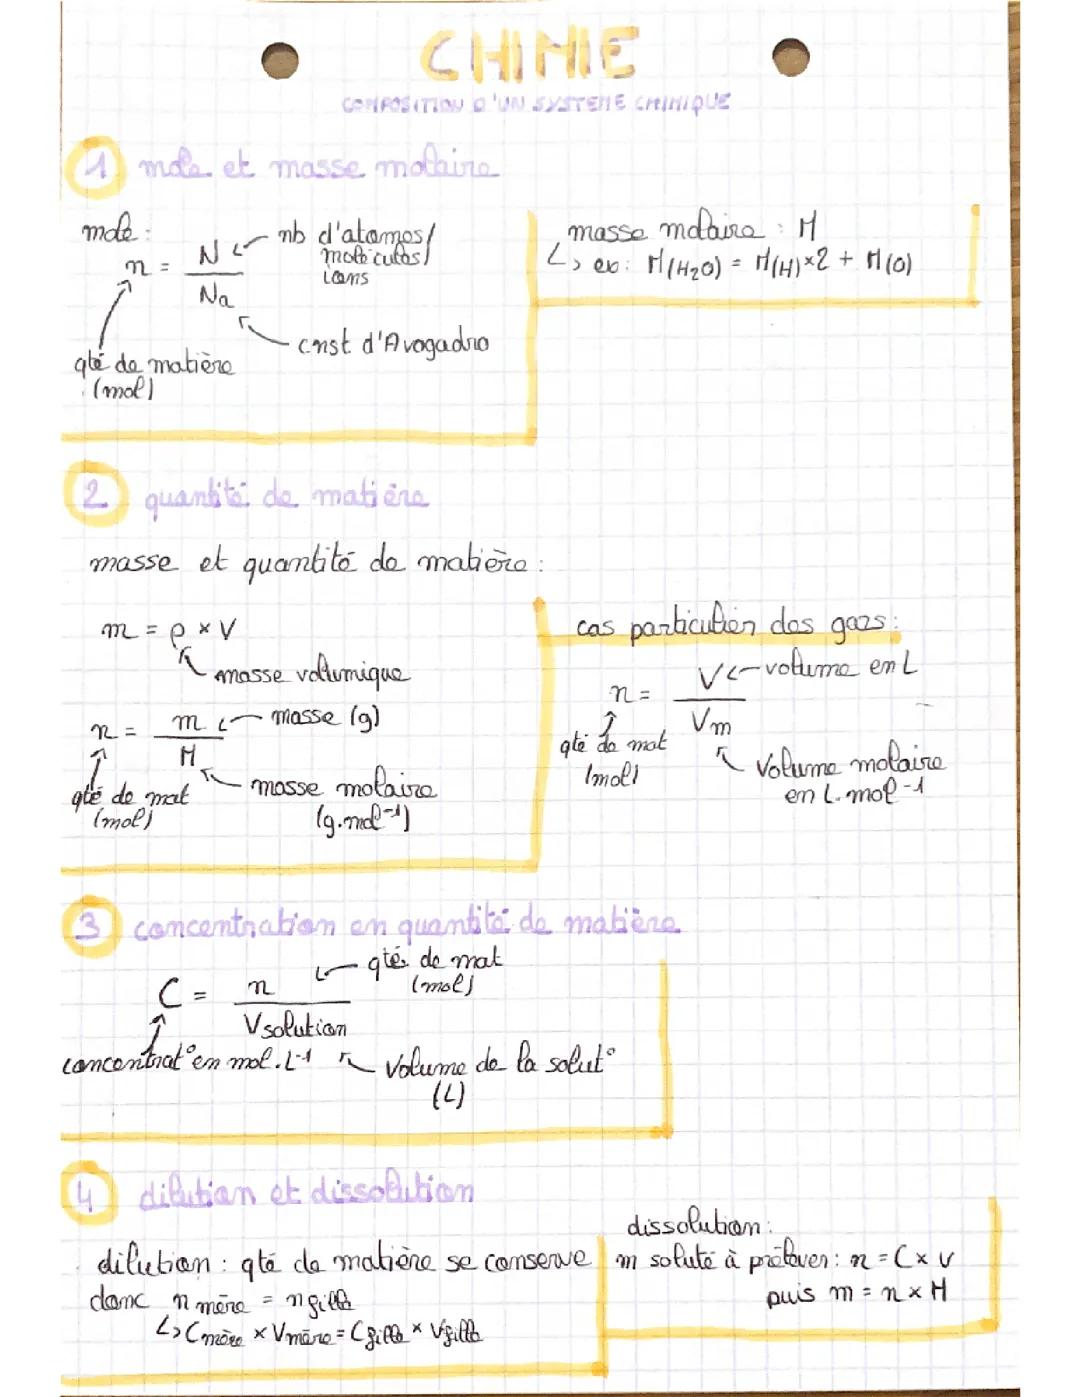 CHIMIE
COMPOSITION D'UN SYSTEME CHIMIQUE
1 mole et masse molaire
mole :
n = N / Na
nb d'atomes/
molécules/
ions
cnst d'Avogadro
qté de matière
(mol)
masse molaire : M
↳ ex: M(H₂O) = M(H)×2 + M(O)
2 quantité de matière
masse et quantité de matière :
m = ρ × V
masse volumique
n = m / M
masse (g)
qté de mat
(mol)
masse molaire
(g.mol⁻¹)
cas particulier des gazs :
n = V / Vm
volume en L
qté de mat
(mol)
Volume molaire
en L.mol⁻¹
3 concentration en quantité de matière
C = n / Vsolution
qtés de mat
(mol)
concentrat° en mol.L⁻¹
Volume de la solut°
(L)
4 dilution et dissolution
dilution : qté de matière se conserve
donc n mère = n fille
↳ Cmère × Vmère = Cfille × Vfille
dissolution :
m soluté à prélever : n = C × V
puis m = n × M